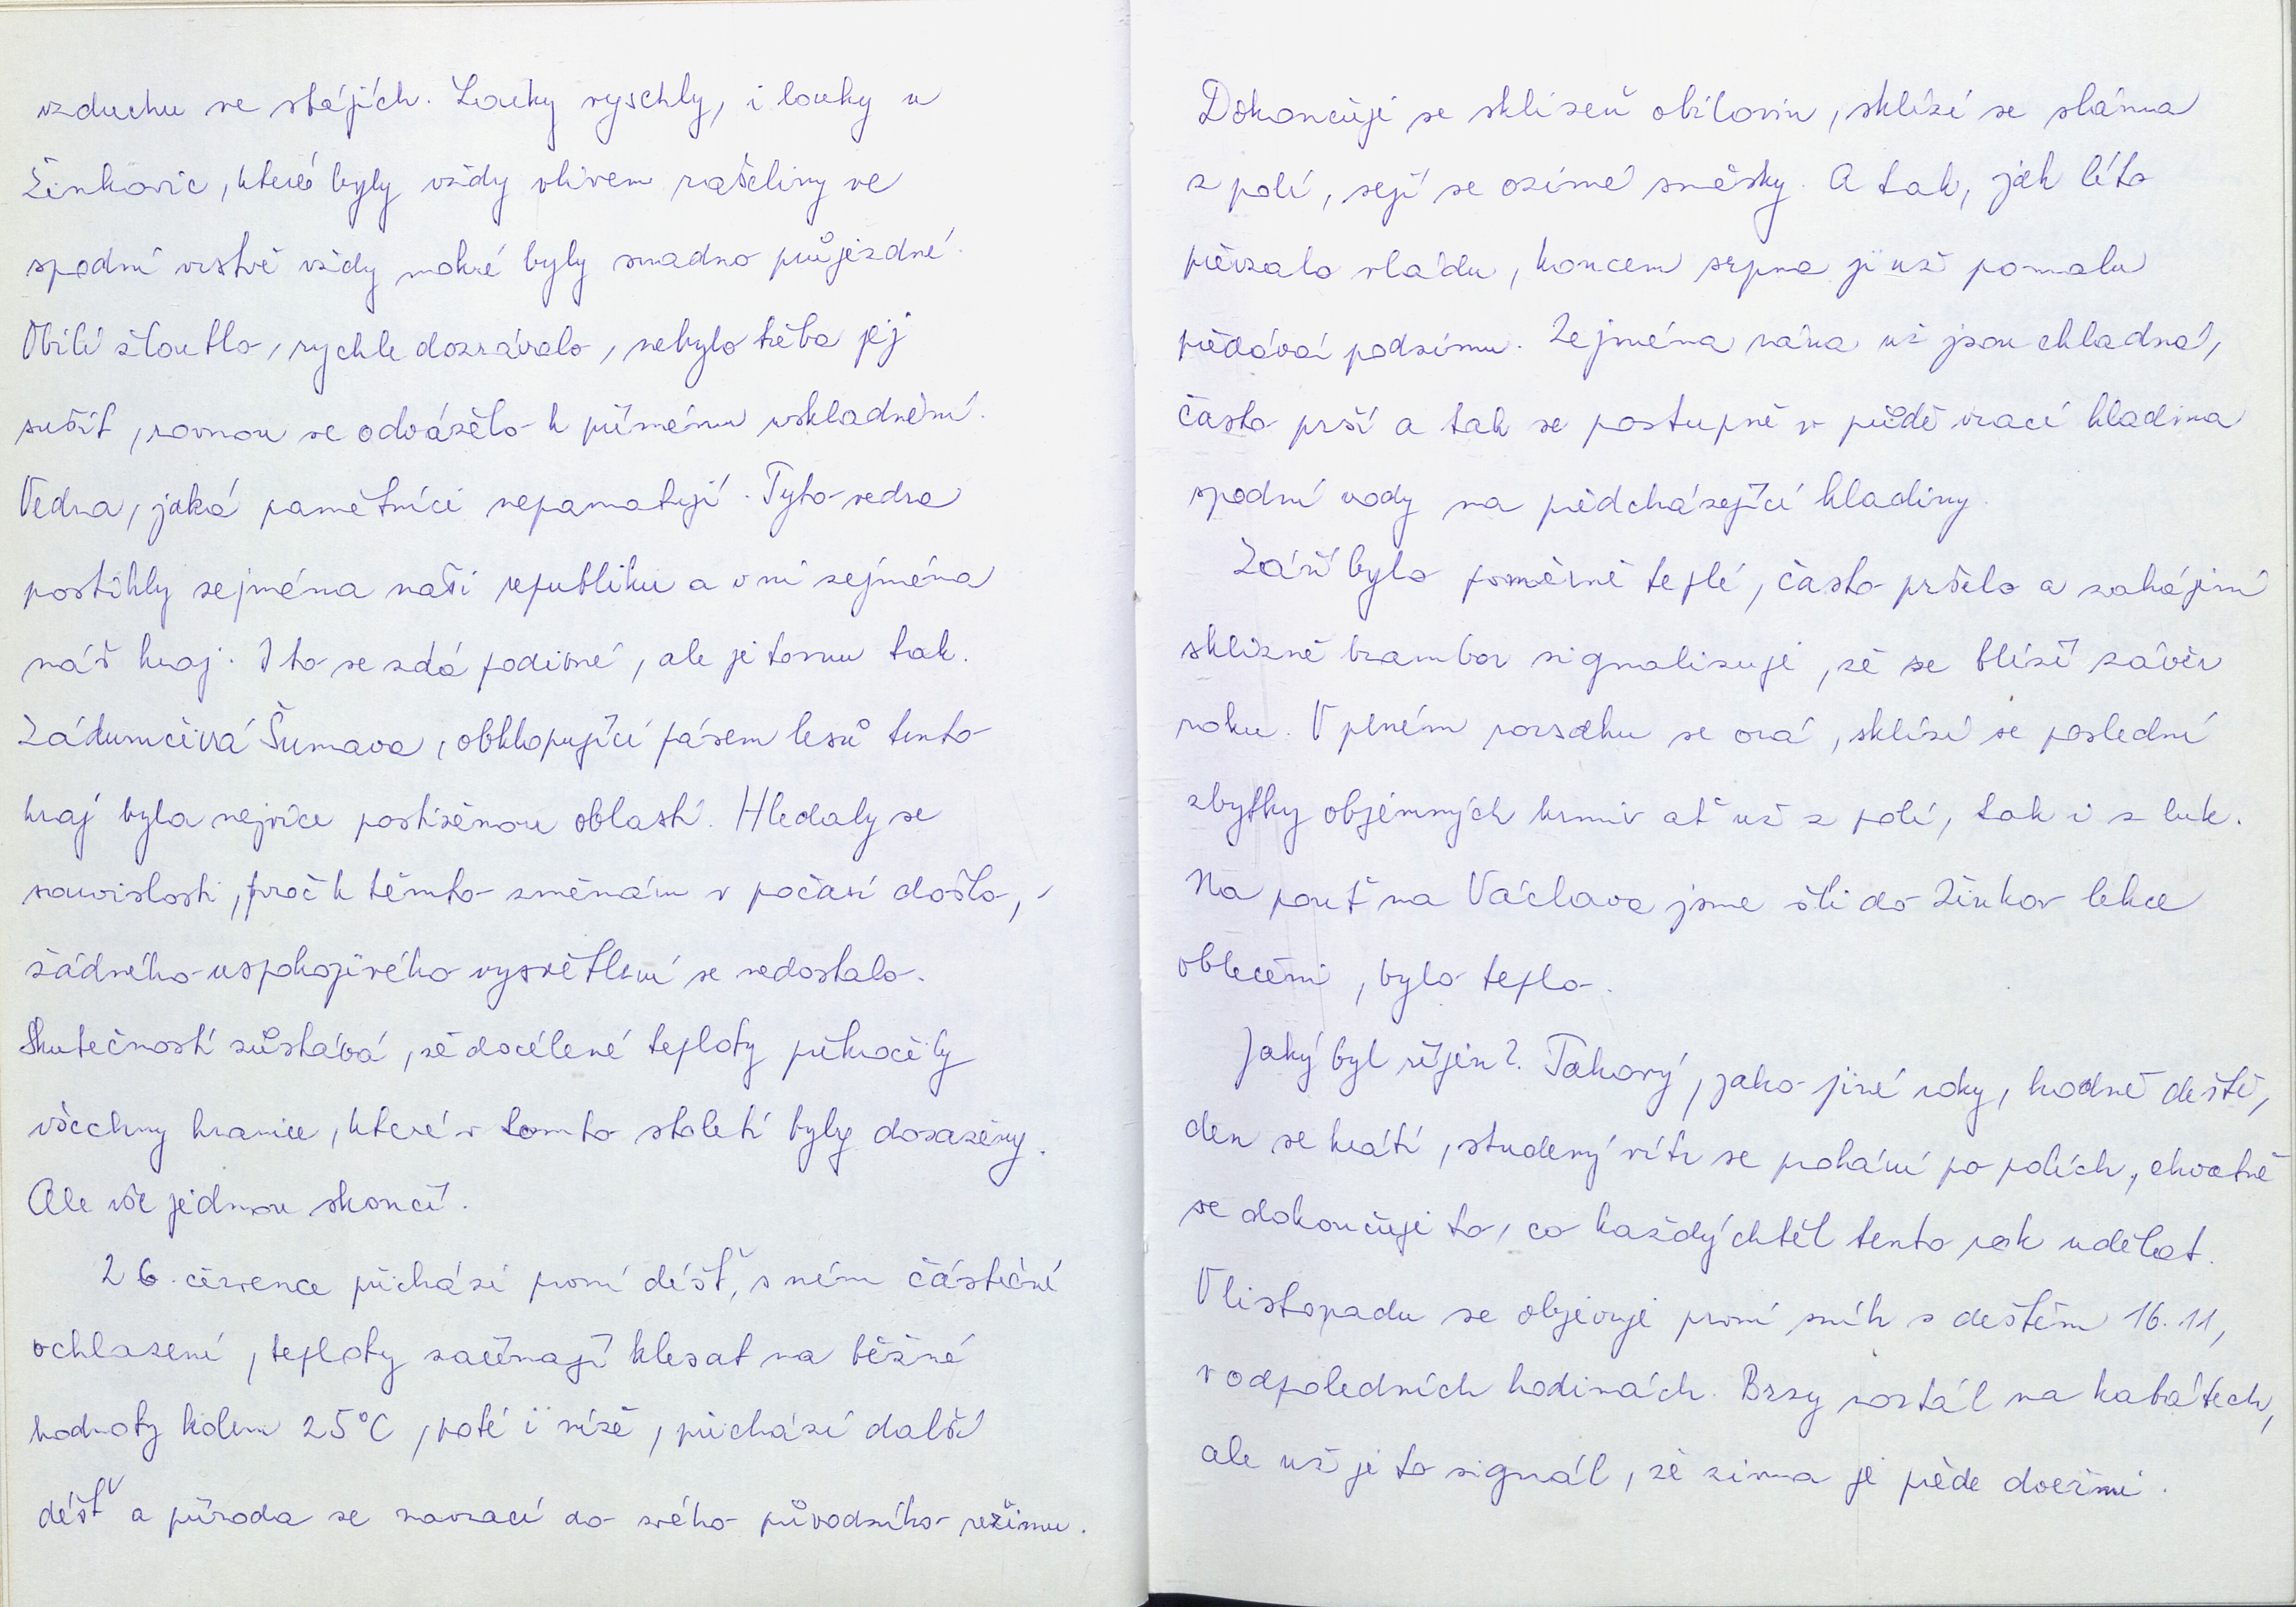 vzduchu ve stájích. Louky vyschly, i louky u
Žinkovic, které byly vždy vlivem rašeliny ve
spodní vrstvě vždy mokré byly snadno průjezdné.
Obilí žloutlo, rychle dozrávalo, nebylo třeba jej
sušit, rovnou se odváželo k přímému uskladnění.
Vedra, jaká pamětníci nepamatují. Tyto vedra
postihly zejména naši republiku a v ní zejména
náš kraj. I to se zdá podivné, ale je tomu tak.
Zádumčivá Šumava, obklopující pásem lesů tento
kraj byla nejvíce postiženou oblastí. Hledaly se
souvislosti, proč k těmto změnám v počasí došlo, -
žádného uspokojivého vysvětlení se nedostalo.
Skutečností zůstává, že docílené teploty překročily
všechny hranice, které v tomto století byly dosaženy.
Ale vše jednou skončí.
26. července přichází první déšť, s ním částečné
ochlazení, teploty začínají klesat na běžné
hodnoty kolem 25°C, poté i níže, přichází další
déšť a příroda se navrací do svého původního režimu.
Dokončuje se sklizeň obilovin, sklízí se sláma
z polí, sejí se ozimé směsky. A tak, jak léto
převzalo vládu, koncem srpna ji už pomalu
předává podzimu. Zejména rána už jsou chladná,
často prší a tak se postupně v půdě vrací hladina
spodní vody na předcházející hladiny.
Září bylo poměrně teplé, často pršelo a zahájení
sklizně brambor signalizuje, že se blíží závěr
roku. V plném rozsahu se orá, sklízí se poslední
zbytky objemných krmiv ať už z polí, tak i z luk.
Na pouť na Václava jsme šli do Žinkov lehce
oblečeni, bylo teplo.
Jaký byl říjen?. Takový, jako jiné roky, hodně deště,
den se krátí, studený vítr se prohání po polích, chvatně
se dokončuje to, co každý chtěl tento rok udělat.
V listopadu se objevuje první sníh s deštěm 16. 11,
v odpoledních hodinách. Brzy roztál na kabátech,
ale už je to signál, že zima je přede dveřmi.